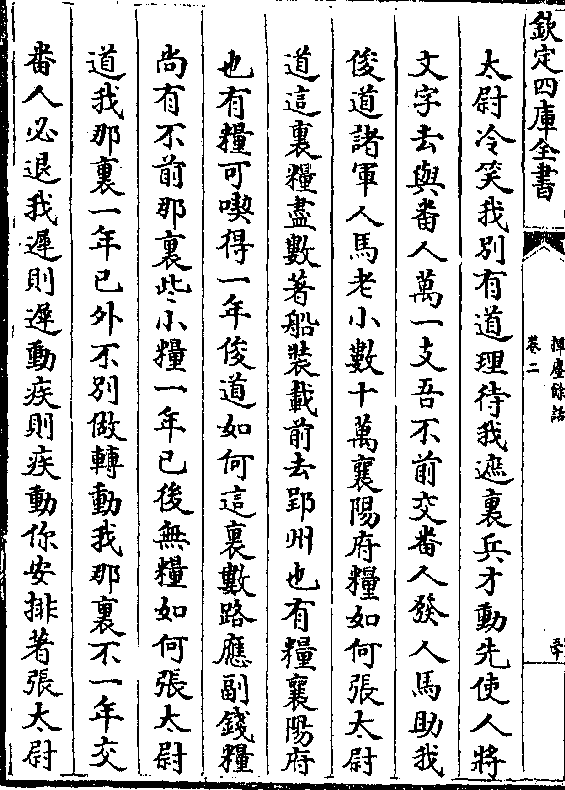 欽定四庫全書
揮麈餘話
卷二
太尉冷笑我別有道理待我遮裏兵才動先使人將
文字去與畨人萬一支吾不前交畨人發人馬助我
俊道諸軍人馬老小數十萬襄陽府糧如何張太尉
道這裏糧盡數著船裝載前去郢州也有糧襄陽府
也有糧可喫得一年俊道如何這裏數路應副錢糧
尚有不前那裏些小糧一年已後無糧如何張太尉
道我那裏一年已外不別做轉動我那裏不一年交
畨人必退我遲則遲動疾則疾動你安排著張太尉